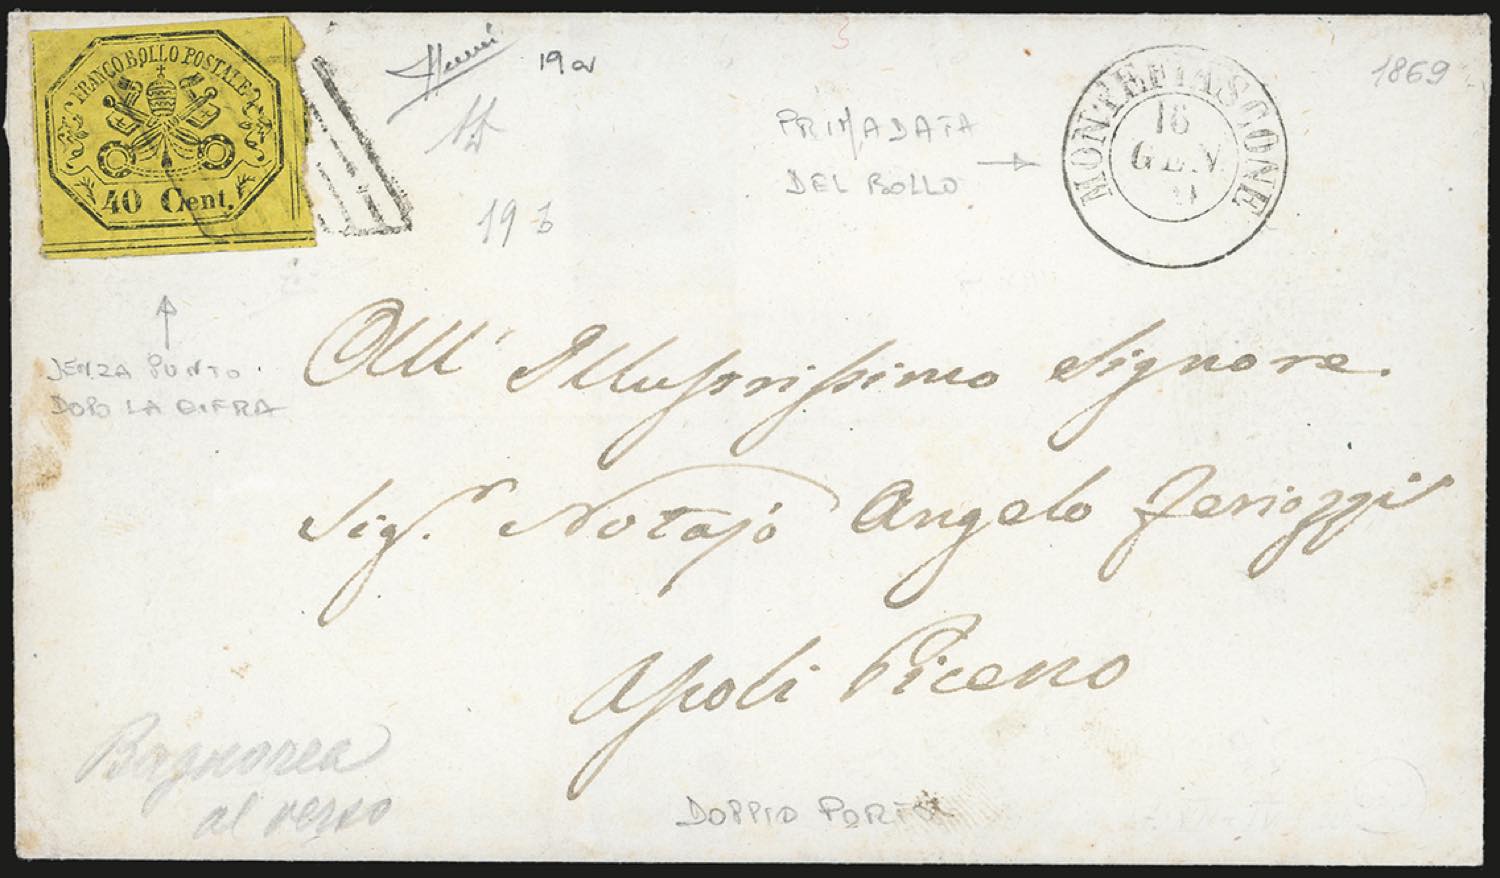 FRANCO BOLLO POSTALE
40 Cent.
19 a
19 b
3
PRIMA DATA
DEL BOLLO
MONTEFIASCONE
16
GEN.
1869
SENZA PUNTO
DOPO LA CIFRA
All' Illustrissimo Signore.
Sigr. Notajo Angelo
Ascoli Piceno
Bagnorea
al verso
DOPPIO PORTO